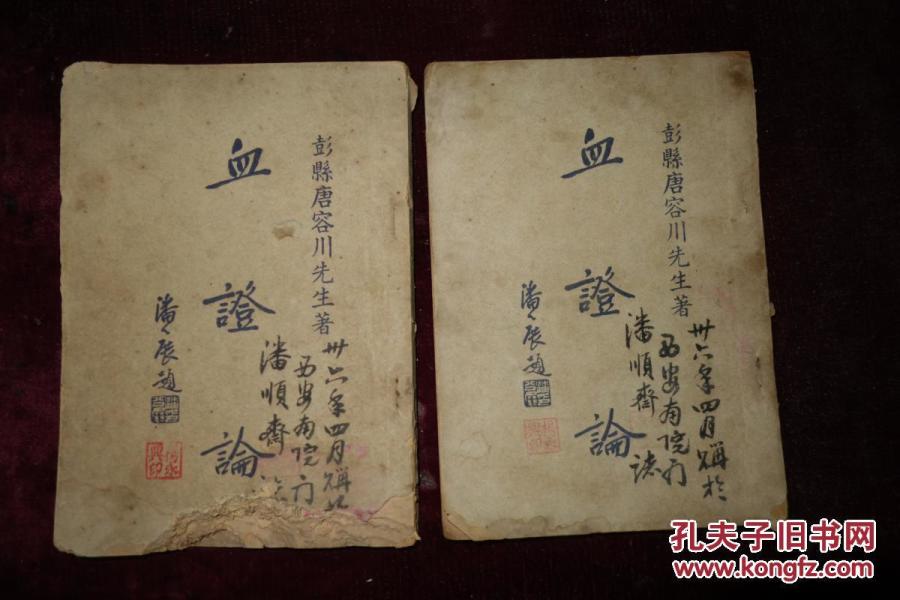 彭縣唐容川先生著
血證論
潘辰題
卅六年四月購於
西安南院门
潘順齋
彭縣唐容川先生著
血證論
潘辰題
卅六年四月購於
西安南院门
潘順齋誌
孔夫子旧书网
www.kongfz.com